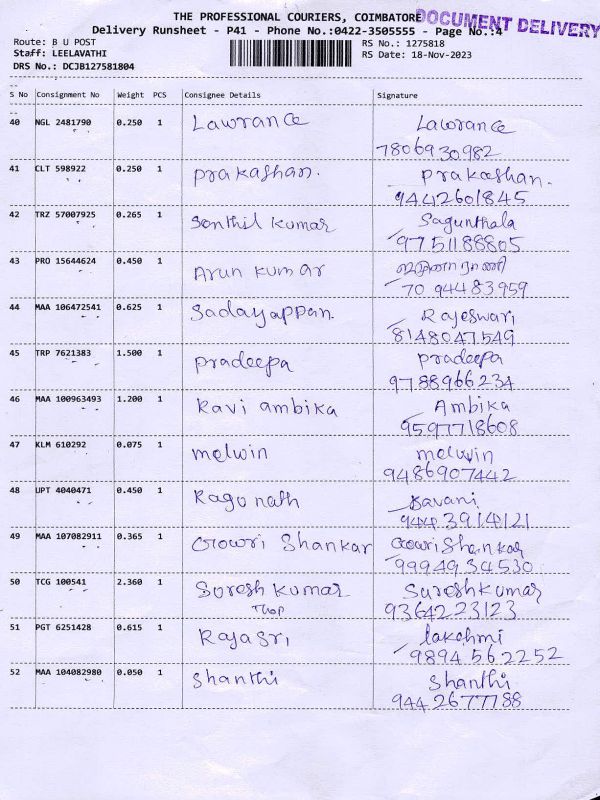 THE PROFESSIONAL COURIERS, COIMBATORE
DOCUMENT DELIVERY
Delivery Runsheet - P41 - Phone No.:0422-3505555 - Page No.:4
Route: B U POST
RS No.: 1275818
Staff: LEELAVATHI
RS Date: 18-Nov-2023
DRS No.: DCJB127581804
S No Consignment No Weight PCS Consignee Details Signature
40 NGL 2481790 0.250 1 Lawrance Lawrance
7806930982
41 CLT 598922 0.250 1 Prakashan. Prakashan.
9442601845
42 TRZ 57007925 0.265 1 Senthil Kumar Sagunthala
9751188805
43 PRO 15644624 0.450 1 Arun Kumar
70 94483959
44 MAA 106472541 0.625 1 Sadayappan. Rajeswari
8148047549
45 TRP 7621383 1.500 1 Pradeepa Pradeepa
9788966234
46 MAA 100963493 1.200 1 Ravi ambika Ambika
9597718608
47 KLM 610292 0.075 1 melwin melwin
9486907442
48 UPT 4040471 0.450 1 Ragu nath Bavani
9442 3914121
49 MAA 107082911 0.365 1 Gowri Shankar Gowri Shankar
9994934530
50 TCG 100541 2.360 1 Suresh Kumar Suresh Kumar
9364223123
51 PGT 6251428 0.615 1 Rajasri lakshmi
9894 562252
52 MAA 104082980 0.050 1 Shanthi Shanthi
9442677188